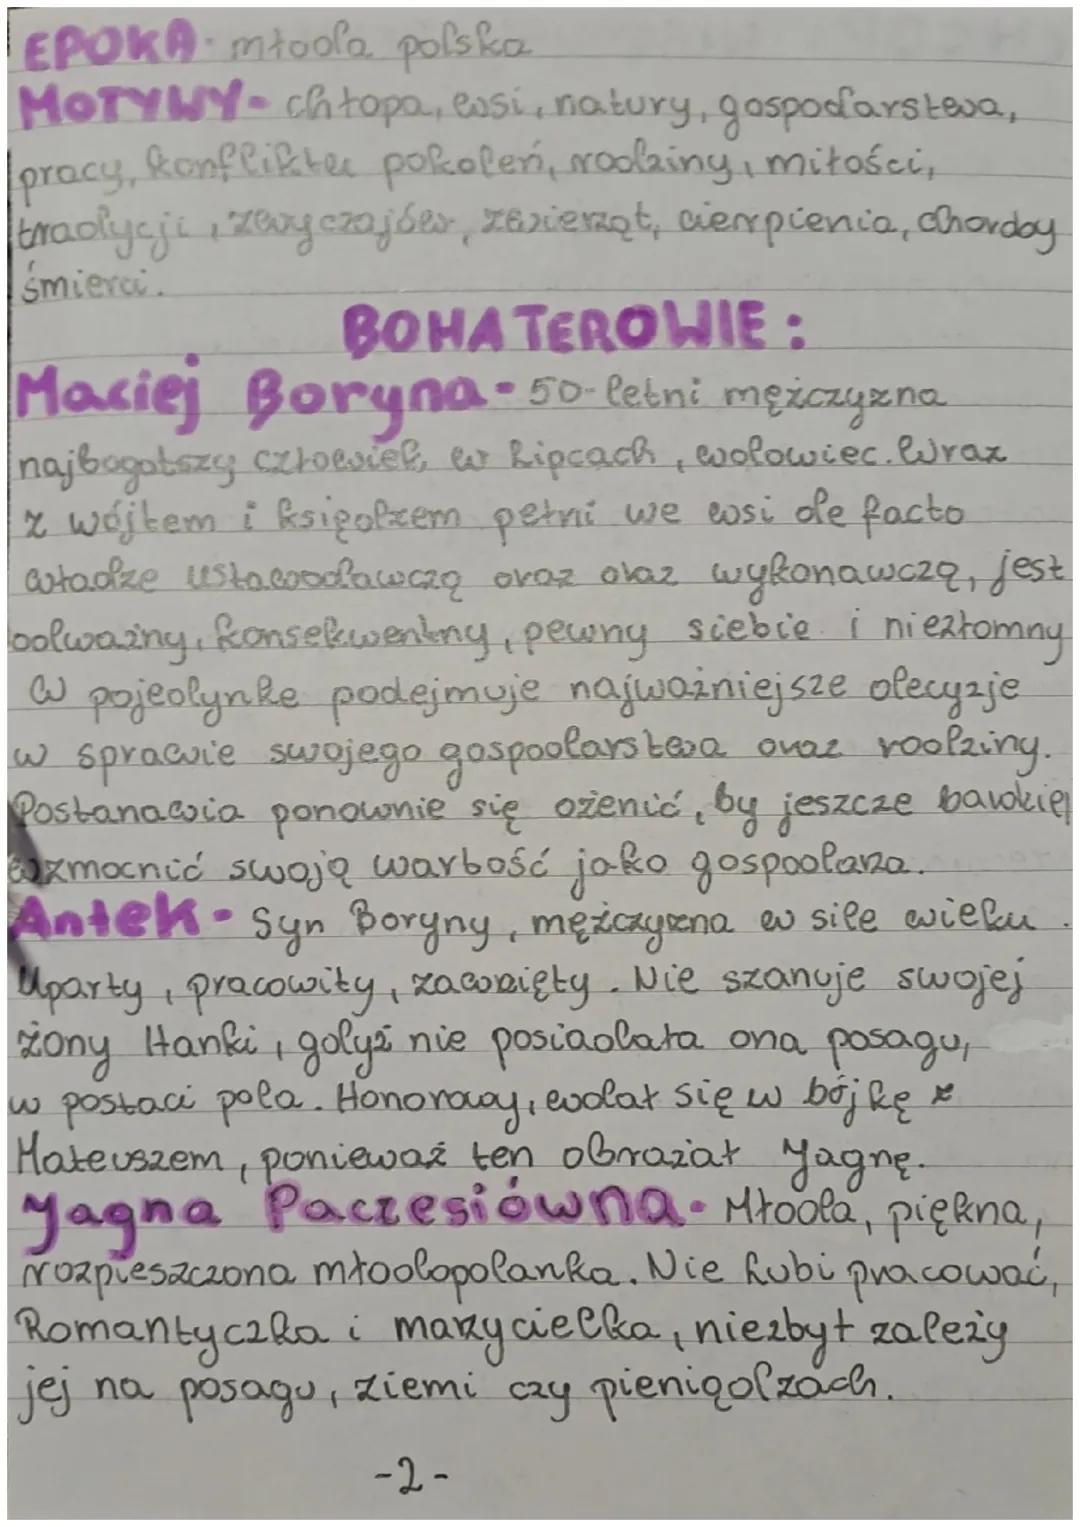 EPOKA - młoda polska
MOTYWY - chłopa, wsi, natury, gospodarstwa,
pracy, konfliktu pokoleń, rodziny, miłości,
tradycji, zwyczajów, zwierząt, cierpienia, choroby
śmierci.
BOHATEROWIE:
Maciej Boryna - 50-letni mężczyzna
najbogatszy człowiek, w Lipcach, wdowiec. Wraz
z wójtem i księdzem pełni we wsi de facto
władze ustawodawczą oraz oraz wykonawczą, jest
odważny, konsekwentny, pewny siebie i niezłomny
W pojedynkę podejmuje najważniejsze decyzje
w sprawie swojego gospodarstwa oraz rodziny.
Postanawia ponownie się ożenić, by jeszcze bardziej
wzmocnić swoją wartość jako gospodarza.
Antek - Syn Boryny, mężczyzna w sile wieku.
Uparty, pracowity, zawzięty. Nie szanuje swojej
żony Hanki, gdyż nie posiadała ona posagu,
w postaci pola. Honorowy, wdał się w bójkę z
Mateuszem, ponieważ ten obrażał Jagnę.
Jagna Paczesiówna - Młoda, piękna,
rozpieszczona młodopolanka. Nie lubi pracować,
Romantyczka i marzycielka, niezbyt zależy
jej na posagu, ziemi czy pieniądzach.
-2-